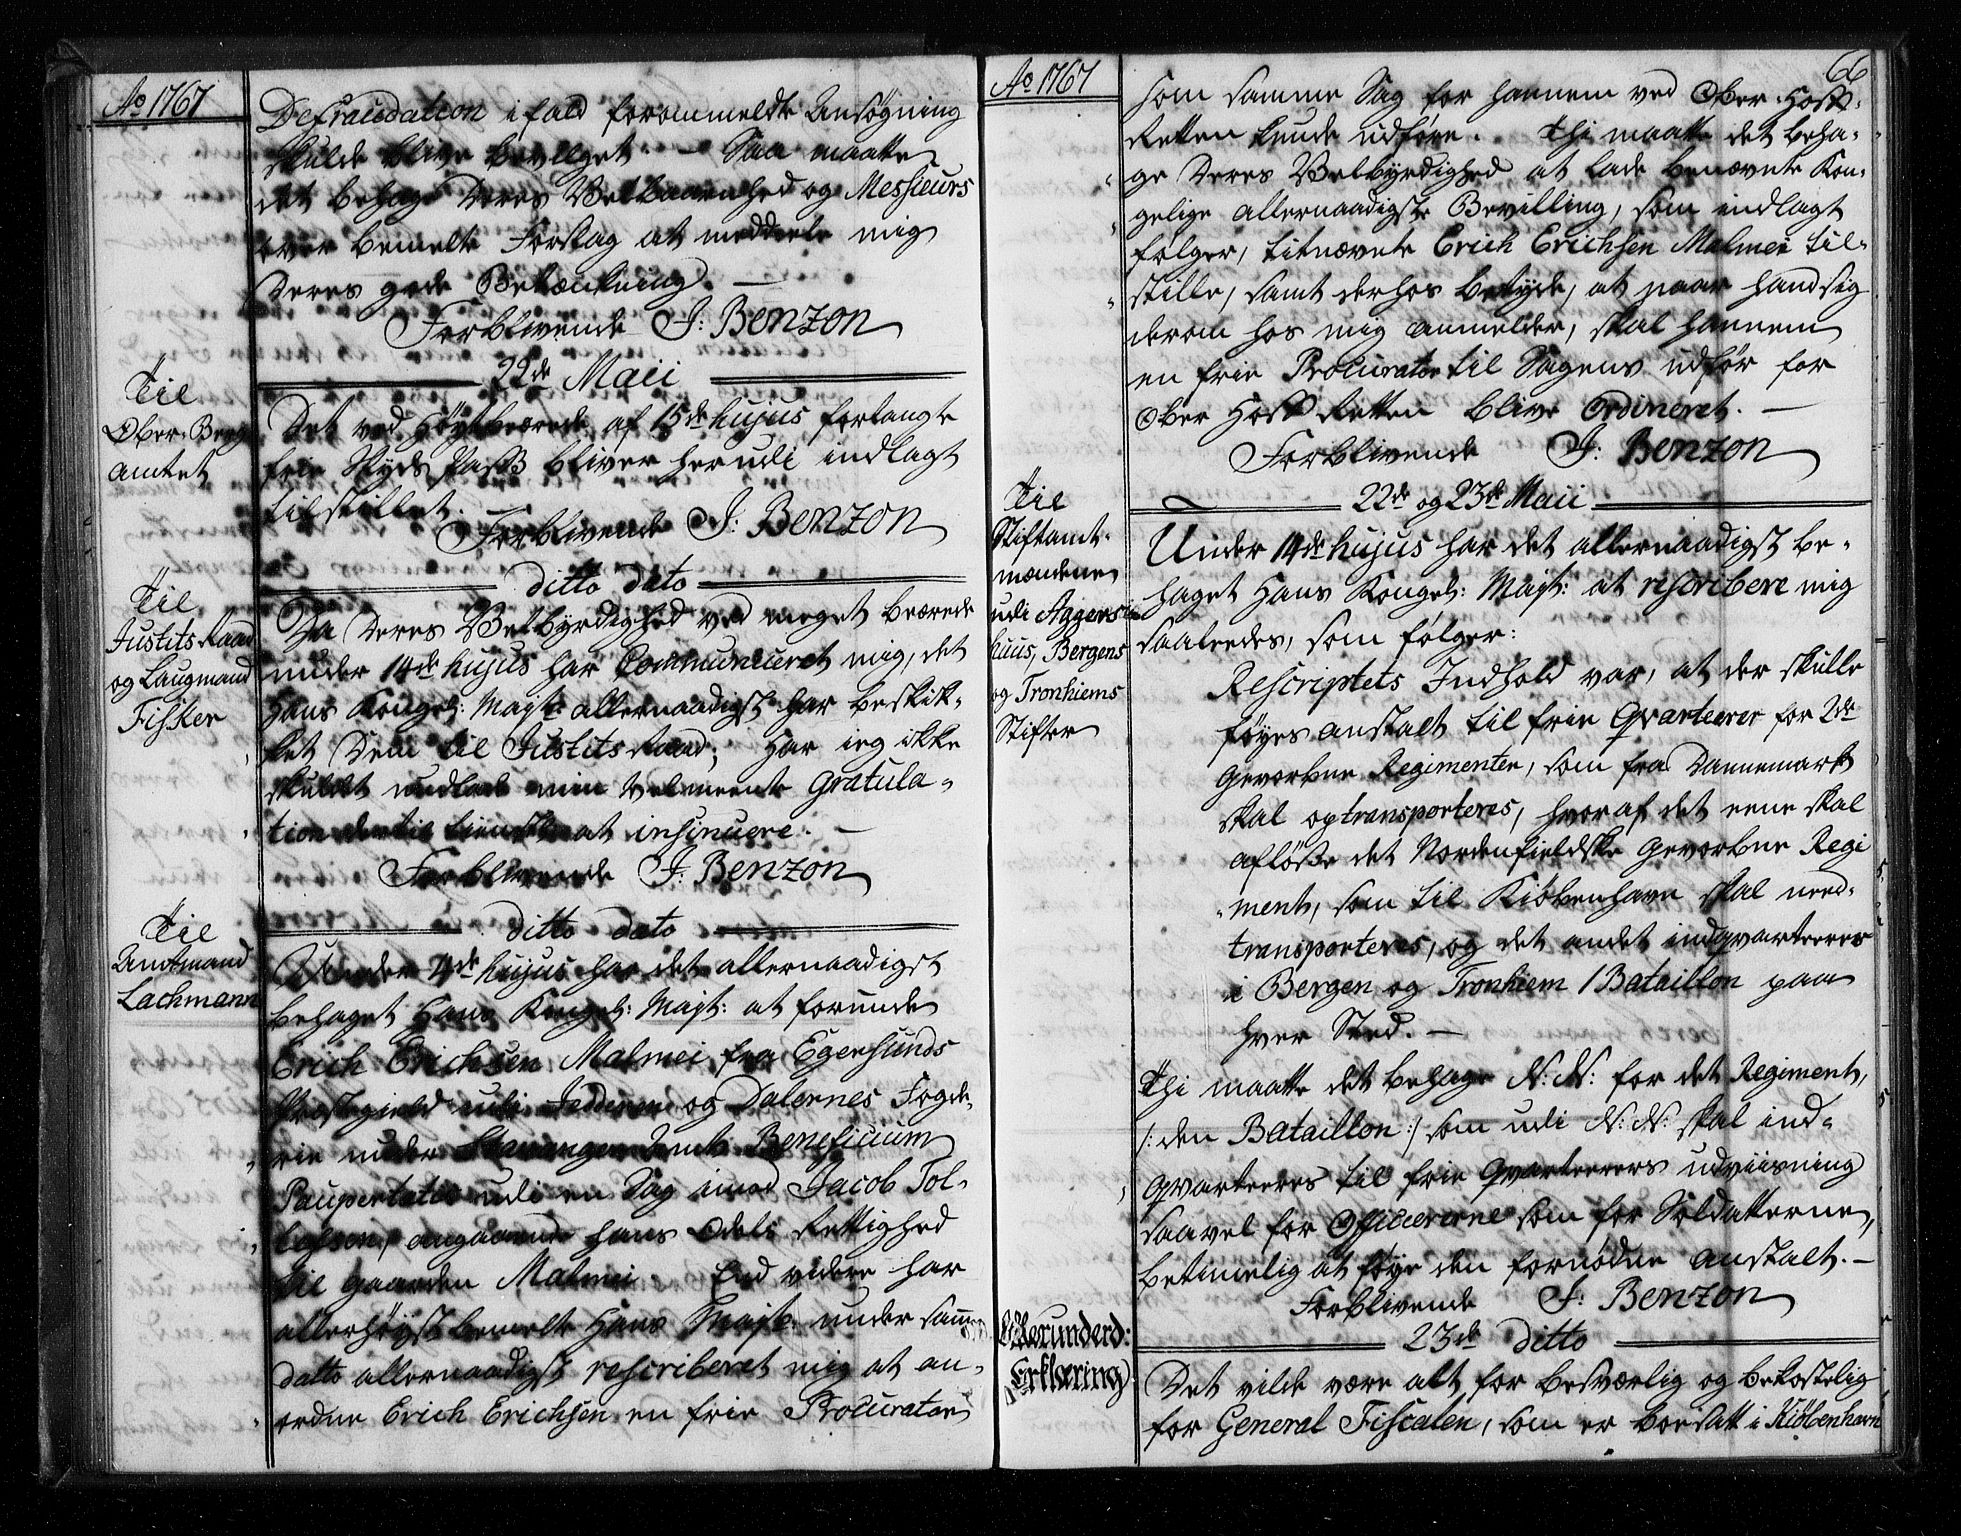 Ao 1767
Defraudation ifald forommeldte Ansøgning
skulde blive bevilget. - Saa maatte
det behage Deres Velbaarenhed og Messieurs
over bemelte Forslag at meddeele mig
Deres gode Betænkning. -
Forblivende J: Benzon
22de Maii
Til
Ober-Berg-
amtet
Det ved Høystbærede af 15de hujus forlangte
frie Skyds Pass bliver herudi indlagt
tilstillet.
Forblivende J: Benzon
ditto dato
Til
Justits Raad
og Laugmand
Fisker
Da Deres Velbyrdighed ved meget beærede
under 14de hujus har Communiceret mig, det
Hans Kongel: Majt: allernaadigst har beskik-
ket Dem til Justits Raad; Har ieg ikke
skuldet undlade min velmeente Gratula-
tion dertil tienstl. at insinuere. -
Forblivende J: Benzon
ditto dato
Til
Amtmand
Lachmann
Under 4de hujus har det allernaadigst
behaget Hans Kongel: Majt: at forunde
Erich Erichsen Malmei fra Egersunds
Præstegield udi Jedderen og Dalernes Fogde-
rie under Stavanger Amt Beneficium
Paupertatis udi en Sag imod Jacob Tol-
lefsen, angaaende hans Odels Rettighed
til gaarden Malmei. End videre har
allerhøystbemelte Hans Majt: under samme
Datto allernaadigst rescriberet mig at an-
ordne Erich Erichsen en frie Procurator
Ao 1767
66
som samme Sag for hannem ved Ober-Hoff-
Retten kunde udføre. Thi maatte det beha-
ge Deres Velbyrdighed at lade benævnte Kon-
gelige allernaadigste Bevilling, som indlagt
følger, titnævnte Erich Erichsen Malmei til-
stille, samt derhos betyde, at naar hand sig
derom hos mig anmelder, skal hannem
en frie Procurator til Sagens udfør for
Ober Hoff Retten blive Ordineret. -
Forblivende J: Benzon
22de og 23de Maii
Til
Stiftamt-
mændene
udi Aggers-
huus, Bergens
og Tronhiems
Stifter
Under 14de hujus har det allernaadigst be-
haget Hans Kongel: Majt: at rescribere mig
saaledes, som følger:
Rescriptets Indhold var, at der skulle
føyes anstalt til frie Qvarteerer for 2de
Gevorbne Regimenter, som fra Dannemark
skal optransporteres, hvoraf det eene skal
afløsse det Nordenfieldske Gevorbne Regi
ment, som til Kiøbenhavn skal need-
transporteres, og det andet indqvarteeres
i Bergen og Tronhiem 1 Bataillon paa
hver Sted. -
Thi maatte det behage N: N: for det Regiment,
/: den Bataillon :/ som udi N: N: skal ind-
qvarteeres til frie Qvarteerers udviisning
saavel for Officererne som for Soldatterne,
betimelig at føye den fornødne anstalt. -
Forblivende J: Benzon
23de ditto
Allerunderd:
Erklæring
Det vilde være alt for besværlig og bekostelig
for General Fiscalen, som er boesatt i Kiøbenhavn